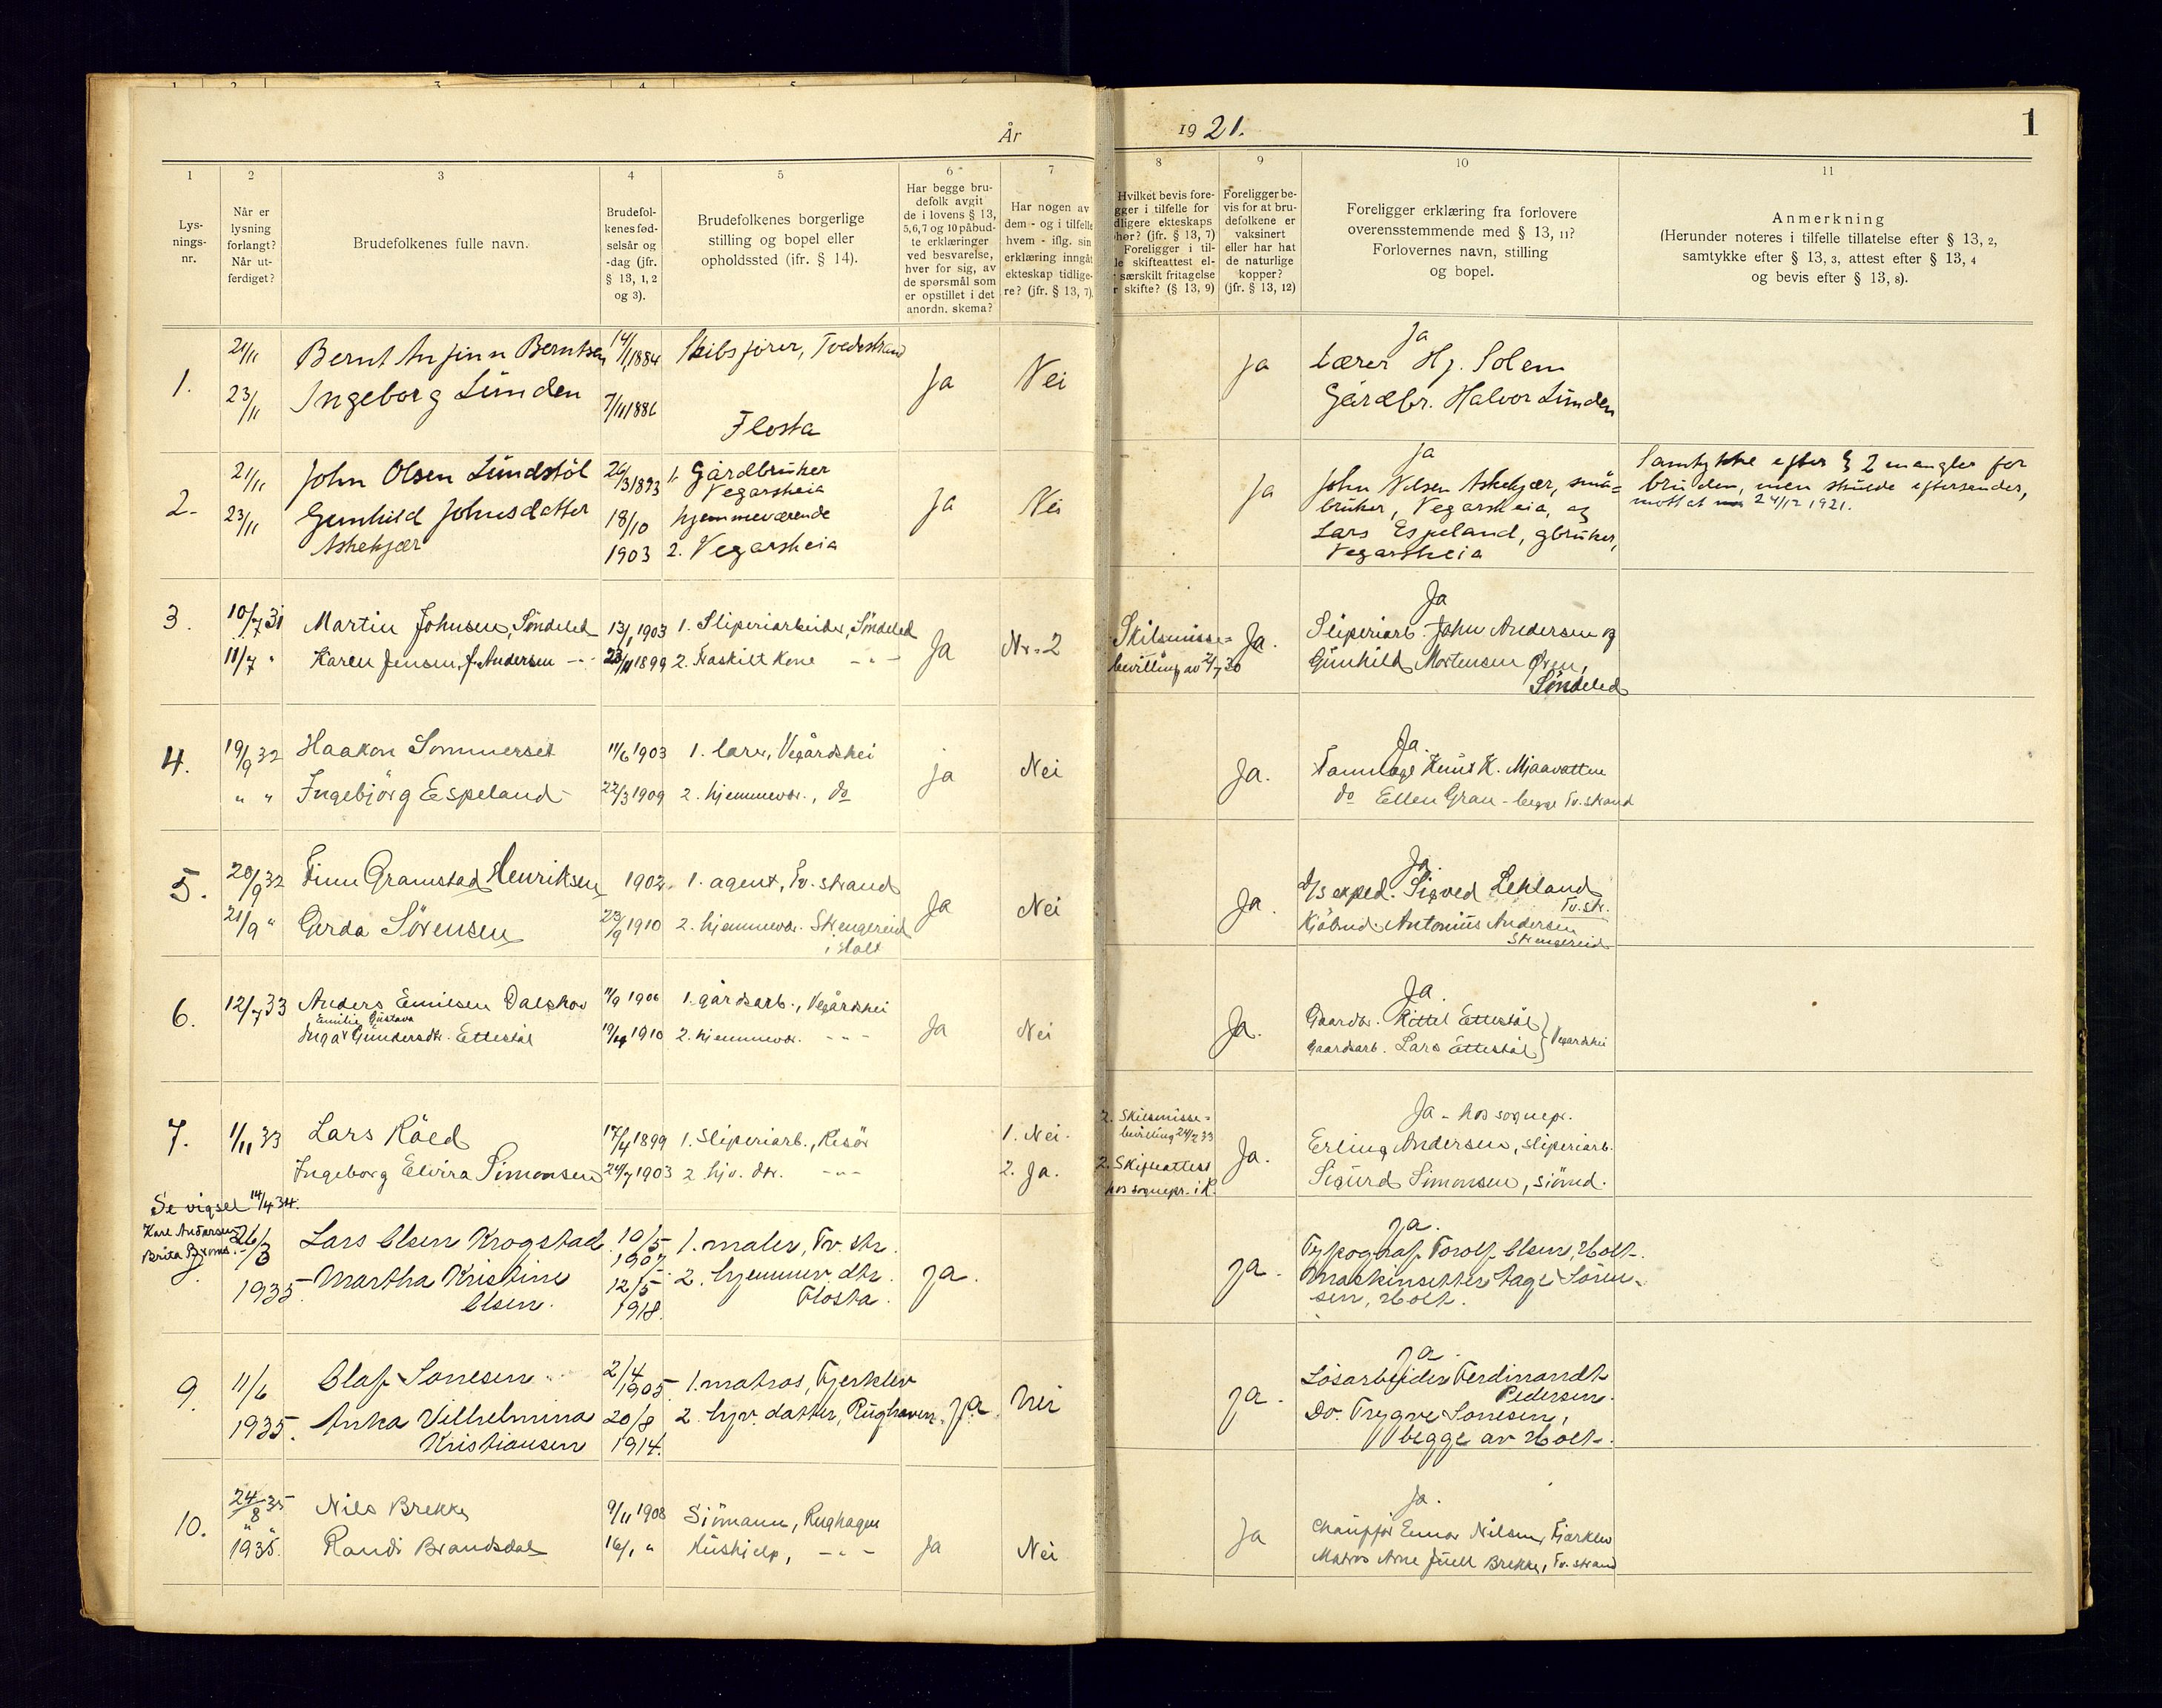 År 1921.
1
1 2 3 4 5 6 7 8 9 10 11
Lys-
nings-
nr.
Når er
lysning
forlangt?
Når ut-
ferdiget?
Brudefolkenes fulle navn.
Brudefol-
kenes fød-
selsår og
-dag (jfr.
§ 13, 1, 2
og 3).
Brudefolkenes borgerlige
stilling og bopel eller
opholdssted (jfr. § 14).
Har begge bru-
defolk avgit
de i lovens § 13,
5, 6, 7 og 10 påbud-
te erklæringer
ved besvarelse,
hver for sig, av
de spørsmål som
er opstillet i det
anordn. skema?
Har nogen av
dem - og i tilfelle
hvem - iflg. sin
erklæring inngåt
ekteskap tidlige-
re? (jfr. § 13, 7)
Hvilket bevis fore-
gger i tilfelle for
dligere ekteskaps
hør? (jfr. § 13, 7)
Foreligger i til-
le skifteattest el-
særskilt fritagelse
r skifte? (§ 13, 9)
Foreligger be-
vis for at bru-
defolkene er
vaksinert
eller har hat
de naturlige
kopper?
(jfr. § 13, 12)
Foreligger erklæring fra forlovere
overensstemmende med § 13, 11?
Forlovernes navn, stilling
og bopel.
Anmerkning
(Herunder noteres i tilfelle tillatelse efter § 13, 2,
samtykke efter § 13, 3, attest efter § 13, 4
og bevis efter § 13, 8).
1. 21/11 Bernt Anfinn Berntsen 14/1 1884 Skibsfører, Tvedestrand
23/11 Ingeborg Lunden 7/11 1886 Flosta
Ja Nei Ja
Ja
Lærer Hj. Solem
Gårdbr. Halvor Lunden
2. 21/11 John Olsen Lundstöl 26/3 1893 1. Gårdbruker
Vegarsheia
23/11 Gunhild Johnsdatter 18/10 hjemmeværende
Askekjær 1903 2. Vegarsheia
Ja Nei Ja
Ja
John Nilsen Askekjær, små-
bruker, Vegarsheia, og
Lars Espeland, gbruker,
Vegarsheia
Samtykke efter § 2 mangler for
bruden, men skulde eftersendes,
mottat 24/12 1921.
3. 10/7 31 Martin Johnsen, Söndeled 13/1 1903 1. Sliperiarbeider, Söndeled
11/7 " Karen Jensen, f. Andersen - " - 23/11 1899 2. Fraskilt kone - " -
Ja Nr. 2
Skilsmisse-
bevilling av 2/7 30
Ja.
Ja
Sliperiarb. John Andersen og
Gunhild Mortensen Øren,
Söndeled
4. 19/9 32 Haakon Sommerset 11/6 1903 1. lærer, Vegårdshei
" " Ingebjörg Espeland 22/3 1909 2. hjemmevær., do
ja Nei Ja.
Ja.
Tannlæge Knut K. Mjaavatten
do Ellen Grau - begge Tv.strand
5. 20/9 32 Finn Gramstad Henriksen 1902. 1. agent, Tv.strand
21/9 " Gerda Sörensen 23/9 1910 2. hjemmevær. Strengereid
i Holt
Ja Nei Ja.
Ja.
d/s exped. Sigved Lekland
Tv.str.
Kjöbmd. Antonius Andersen
Strengereid
6. 12/7 33 Anders Emilsen Dalskov 11/9 1906 1. gårdsarb., Vegårdshei
Emilie Gustava
Inga Gundersdtr. Ettestöl 19/4 1910 2. hjemmevær. - " -
Ja Nei Ja.
Ja.
Gaardbr. Kittel Ettestöl
Gaardsarb. Lars Ettestöl } Vegardshei
7. 1/11 33 Lars Röed 17/4 1899 1. Sliperiarb., Risör
Ingeborg Elvira Simonsen 24/7 1903 2 hjv. dtr. - " -
1. Nei.
2. Ja.
2. Skilsmisse-
bevilling 24/2 33
2. Skifteattest
hos sognepr. i R.
Ja.
Ja - hos sognepr.
Erling Andersen, sliperiarb.
Sigurd Simonsen, sjömd.
Se vigsel 14/4 34.
Karl Andersen
Brita
26/3 Lars Olsen Krogstad. 10/5 1907 1. maler, Tv. str.
1935 Martha Kristine 12/5 2. hjemmev. dtr.
Olsen. 1918. Flosta.
Ja. Ja.
Ja.
Typograf Torolf Olsen Holt.
Maskinsetter Aage Sören-
sen, Holt.
9. 11/6 Olaf Sonesen 2/4 1905 1. matros, Fjerklev
1935. Anka Vilhelmina 20/8 2. hjv. datter, Rughaven.
Kristiansen 1914.
Ja. Nei Ja.
Ja.
Lösarbeider Ferdinandt
Pedersen.
Do. Trygve Sonesen,
begge av Holt.
10. 24/8 35 Nils Brekke 9/11 1908 Sjömann, Rughagen
" " 1935. Randi Brandsdal 16/1 " Hushjelp, - " -
Ja Nei Ja
Ja.
Chauffør Einar Nilsen, Fjærklev
Matros Arne Juell Brekke, Tv.strand